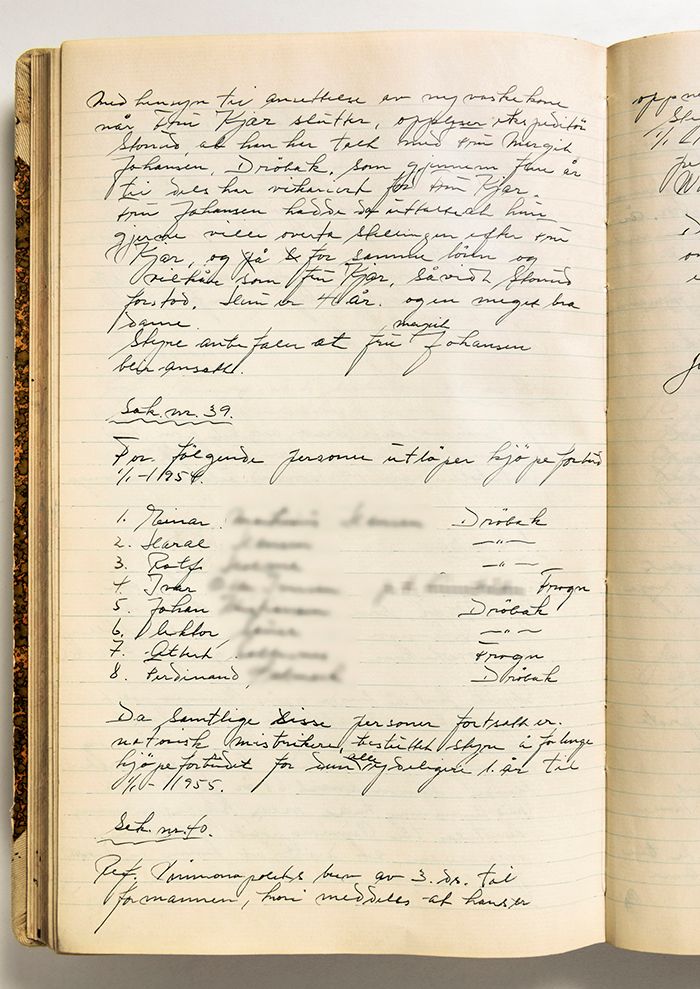 Med hensyn til ansettelse av ny vaskekone
når fru Kjær slutter, opplyser ekspeditör
Storud, at han har talt med fru Margit
Johansen, Dröbak, som gjennem flere år
til dels har vikariert for fru Kjær.
fru Johansen hadde da uttalt at hun
gjerne ville overta stillingen efter fru
Kjær, og på samme lönn og
vilkår som fru Kjær, såvidt Storud
forstod. Hun er 41 år. og en meget bra
dame.
Styre anbefaler at frue Margit Johansen
blir ansatt.
Sak. nr. 39.
For fölgende personer utlöper kjöpeforbud
1/1-1954.
1. Einar Dröbak
2. Haral —"—
3. Rolf —"—
4. Ivar Frogn
5. Johan Dröbak
6. Viktor —"—
7. Albert Frogn
8. Ferdinand, Dröbak
Da samtlige disse personer fortsatt er
notorisk mistrikere, besluttet styre å forlenge
kjöpeforbudet for dem alle ytterligere 1. år til
1/1-1955.
Sak. nr. 40.
Ref. Vinmonopolets brev av 3. ds. til
formannen, hvori meddeles at hans er
oppn
1/1